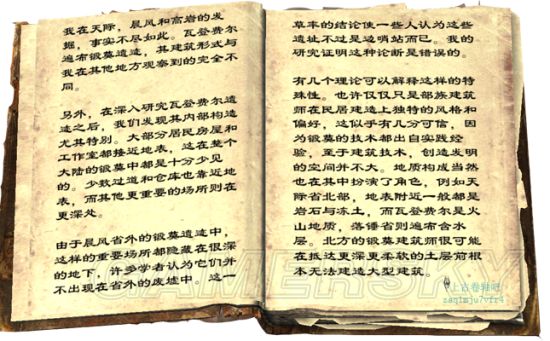 我在天际，晨风和高岩的发
掘，事实不尽如此。瓦登费尔
遍布锻莫遗迹，其建筑形式与
我在其他地方观察到的完全不
同。
另外，在深入研究瓦登费尔遗
迹之后，我们发现其内部构造
尤其特别。大部分居民房屋和
工作室都接近地表，这在整个
大陆的锻莫中都是十分少见
的。少数过道和仓库也靠近地
表，而其他更重要的场所则在
更深处。
由于晨风省外的锻莫遗迹中，
这样的重要场所都隐藏在很深
的地下，许多学者认为它们并
不出现在省外的废墟中。这一
草率的结论使一些人认为这些
遗址不过是边哨站而已。我的
研究证明这种论断是错误的。
有几个理论可以解释这样的特
殊性。也许仅仅只是部族建筑
师在民居建造上独特的风格和
偏好，这似乎有几分可信，因
为锻莫的技术都出自实践经
验，至于建筑技术，创造发明
的空间并不大。地质构成当然
也在其中扮演了角色，例如天
际省北部，地表附近一般都是
岩石与冻土，而瓦登费尔是火
山地质，落锤省则遍布含水
层。北方的锻莫建筑师很可能
在抵达更深更柔软的土层前根
本无法建造大型建筑。
GAMERSKY
上古卷轴吧
zaq1mju7vfr4